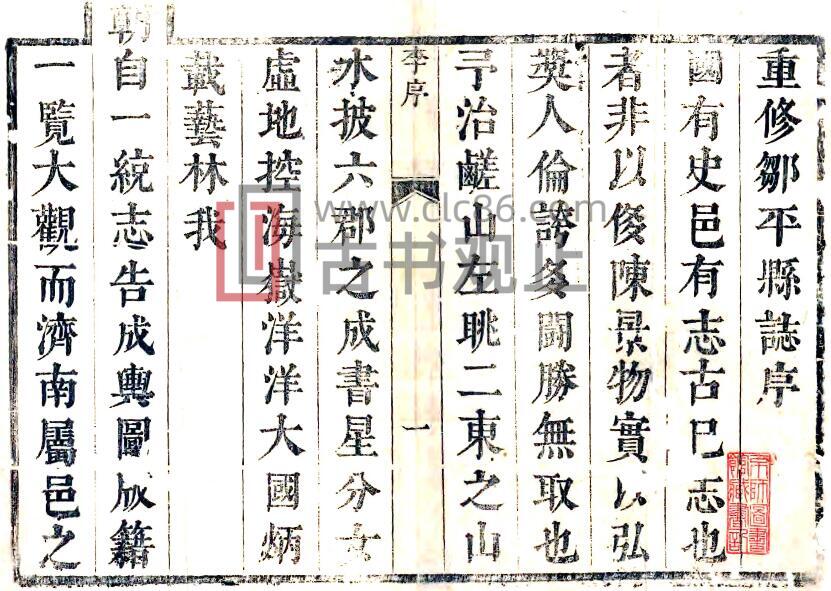 重修鄒平縣誌序
國有史邑有志古巳志也
者非以侈陳景物實以弘
獎人倫誇多鬪勝無取也
予治鹺山左眺二東之山
李序
一
水披六郡之成書星分女
虛地控海嶽洋洋大國炳
載藝林我
朝自一統志告成輿圖版籍
一覽大觀而濟南屬邑之
www.clc86.com
古书观止